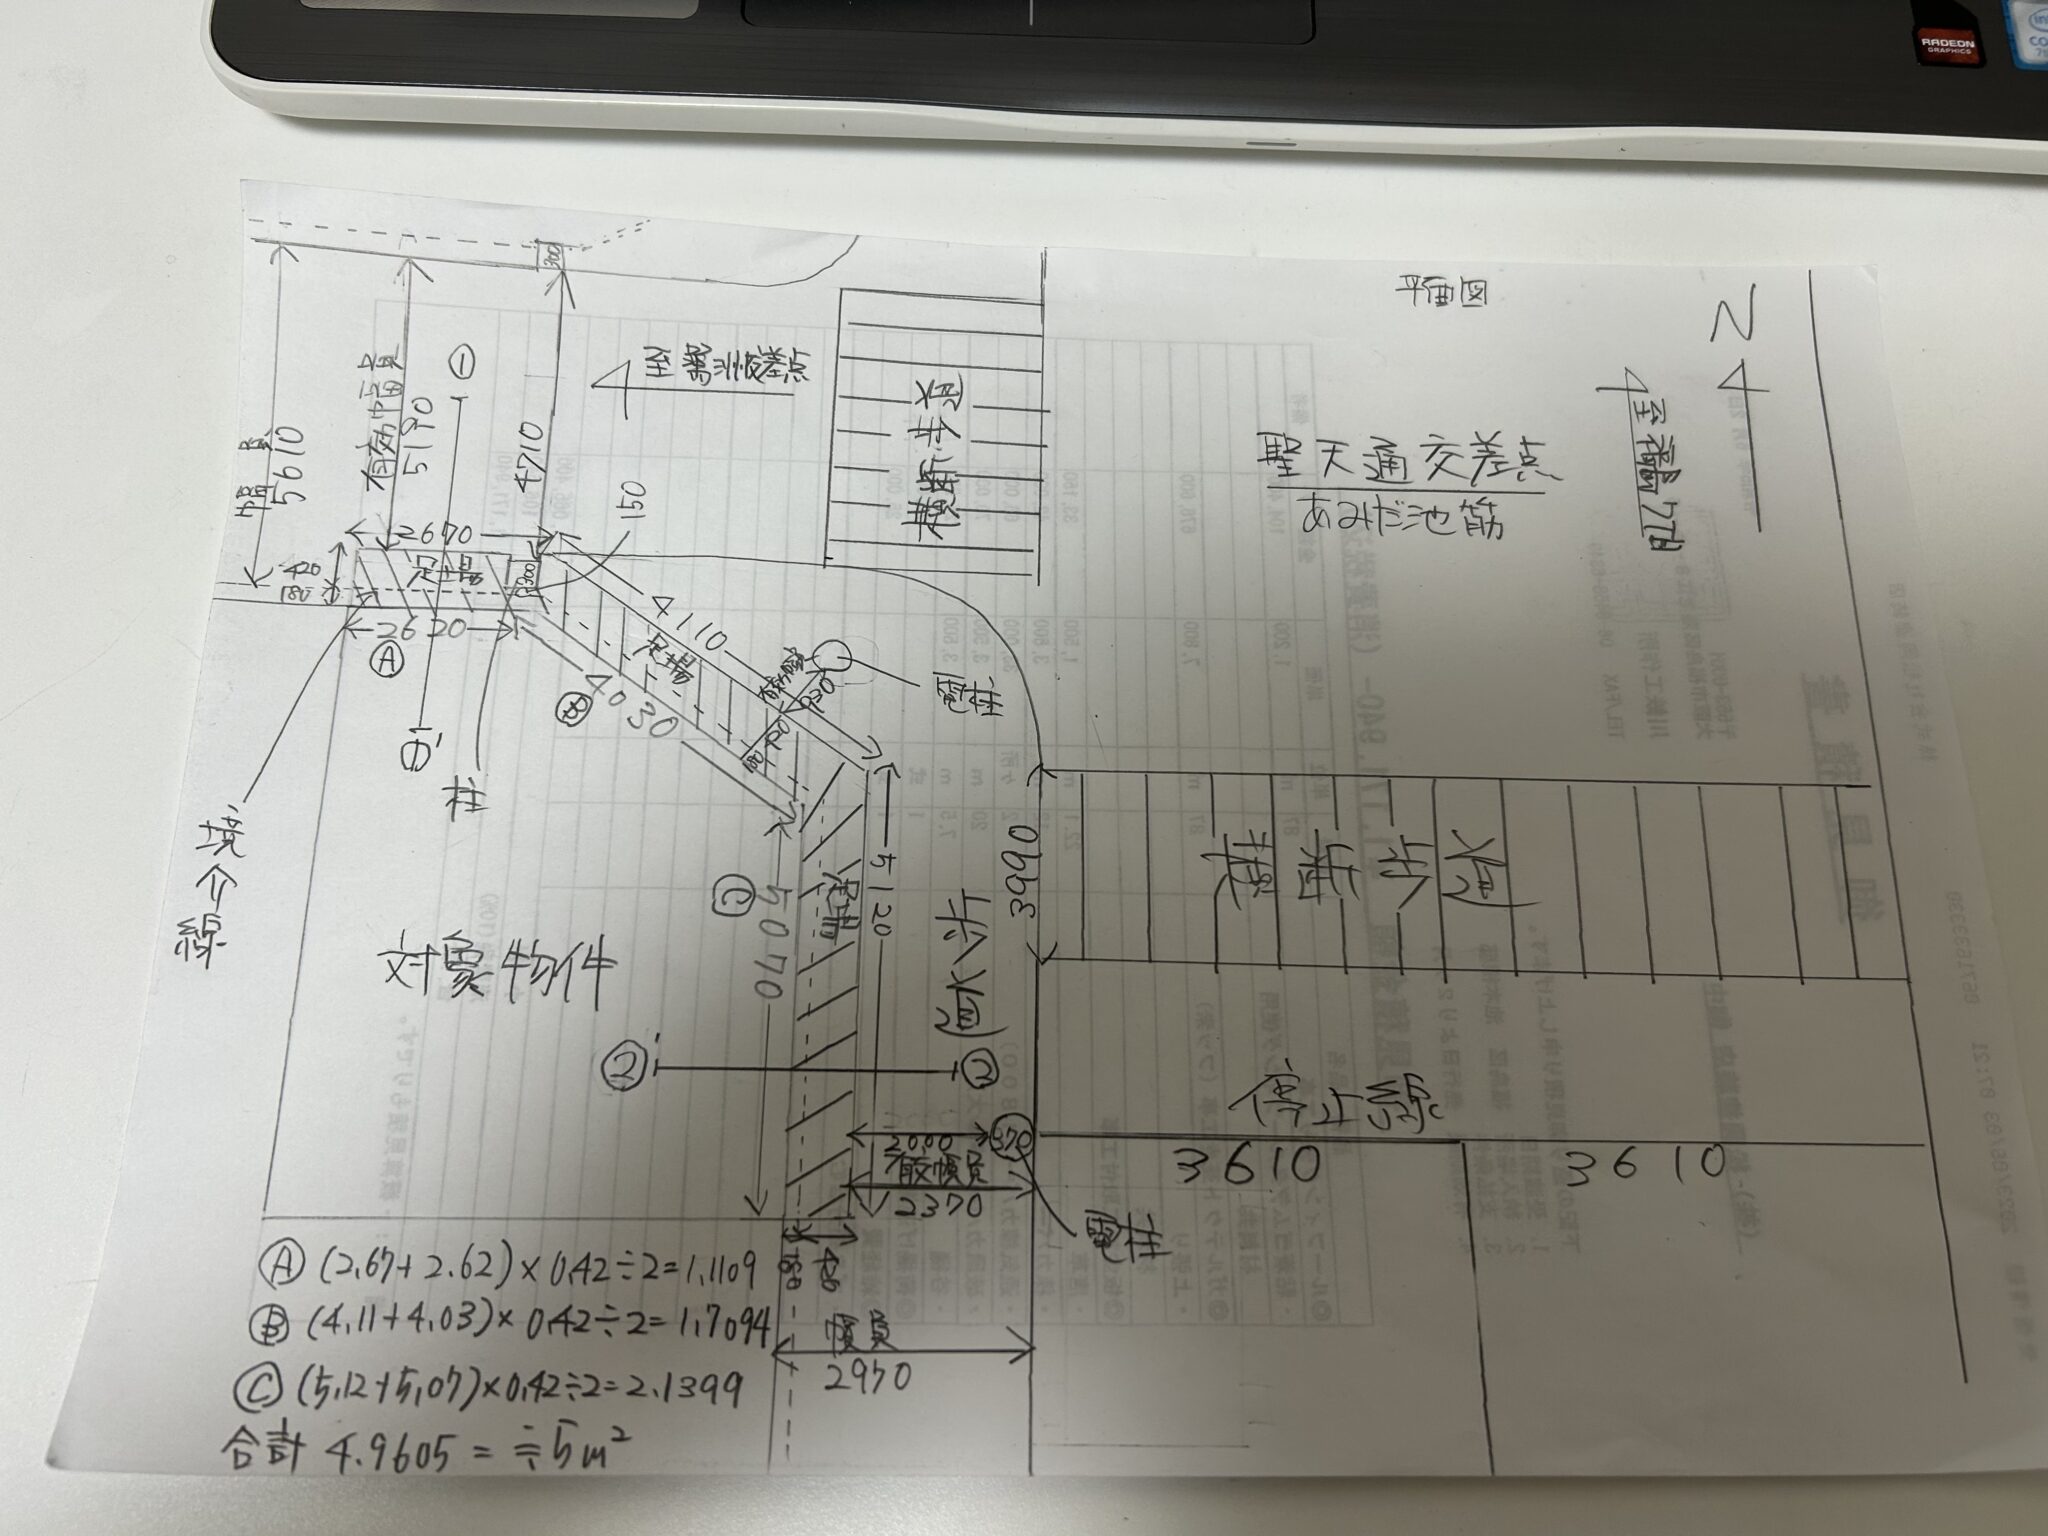 RADEON
GRAPHICS
平面図
聖天通交差点
あみだ池筋
至福町
N
横断歩道
有効幅員
5190
幅員
5610
4710
①
①'
300
150
2670
足場
420
180
300
2620
Ⓐ
柱
境界線
4110
足場
Ⓑ
4030
930
電柱
5120
足場
Ⓒ
5070
歩道
3990
横断歩道
対象物件
②'
②
2000
370
有効幅員
2370
停止線
3610
3610
電柱
180
420
幅員
2970
Ⓐ (2.67+2.62)×0.42÷2=1.1109
Ⓑ (4.11+4.03)×0.42÷2=1.7094
Ⓒ (5.12+5.07)×0.42÷2=2.1399
合計 4.9605 = ≒5m²